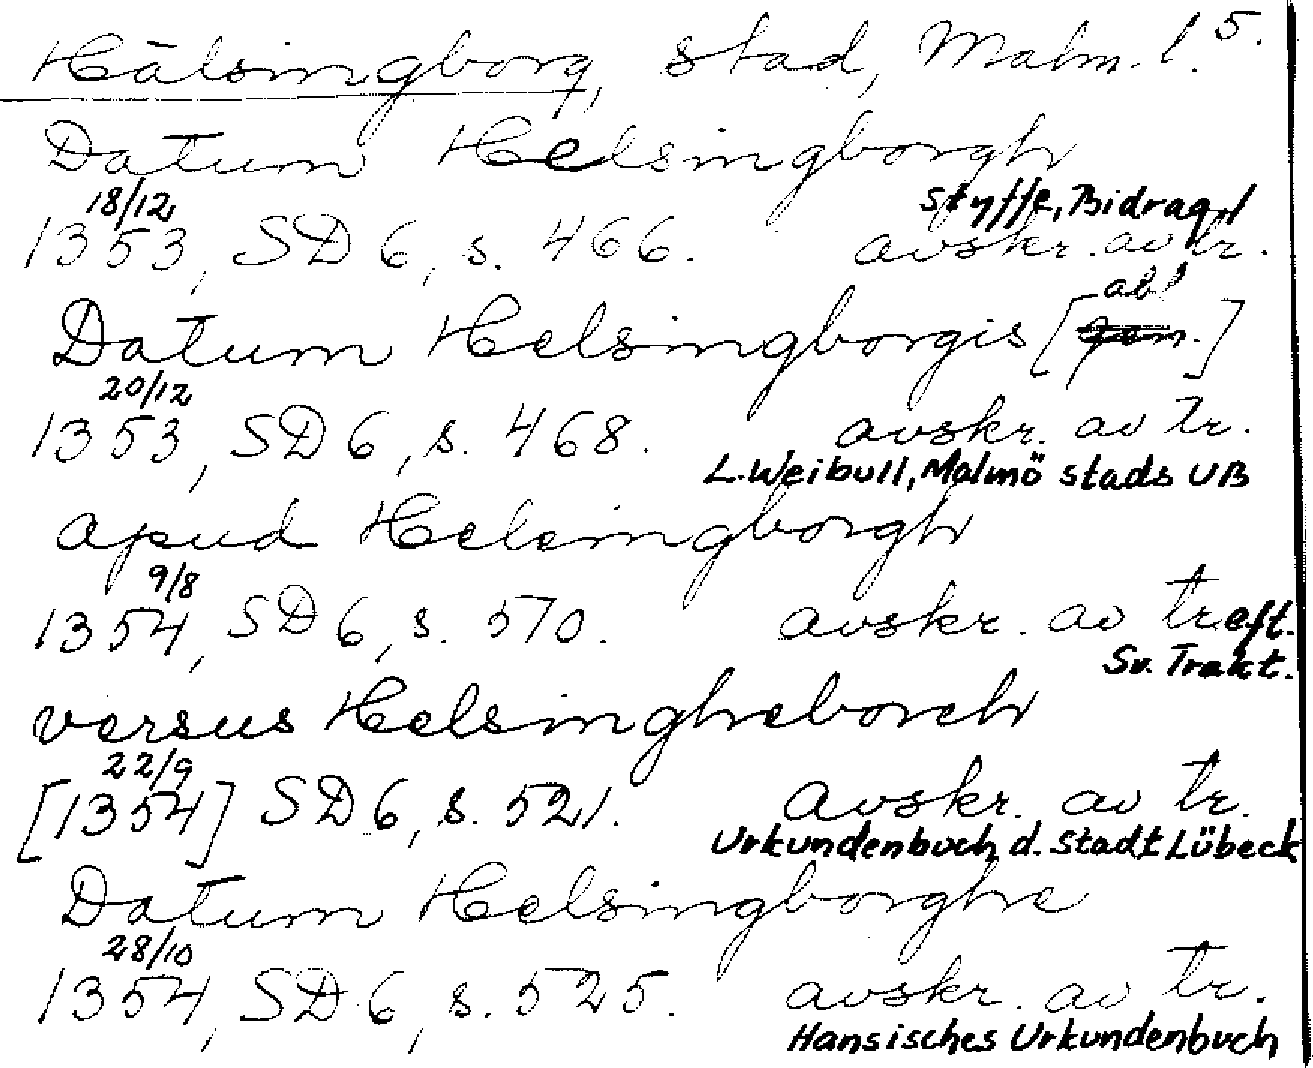 Hälsingborg, stad, Malm. l. 5.
Datum Helsingborgh
18/12 Styffe, Bidrag, I
1353, SD 6, s. 466. avskr. av tr.
abl
Datum Helsingborgis [gen.]
20/12
1353, SD 6, s. 468. avskr. av tr.
L. Weibull, Malmö stads UB
apud Helsingborgh
9/8
1354, SD 6, s. 570. avskr. av tr. eft.
Sv. Trakt.
versus Helsingheborch
22/9
[1354] SD 6, s. 521. avskr. av tr.
Urkundenbuch d. Stadt Lübeck
Datum Helsingborghe
28/10
1354, SD 6, s. 525. avskr. av tr.
Hansisches Urkundenbuch